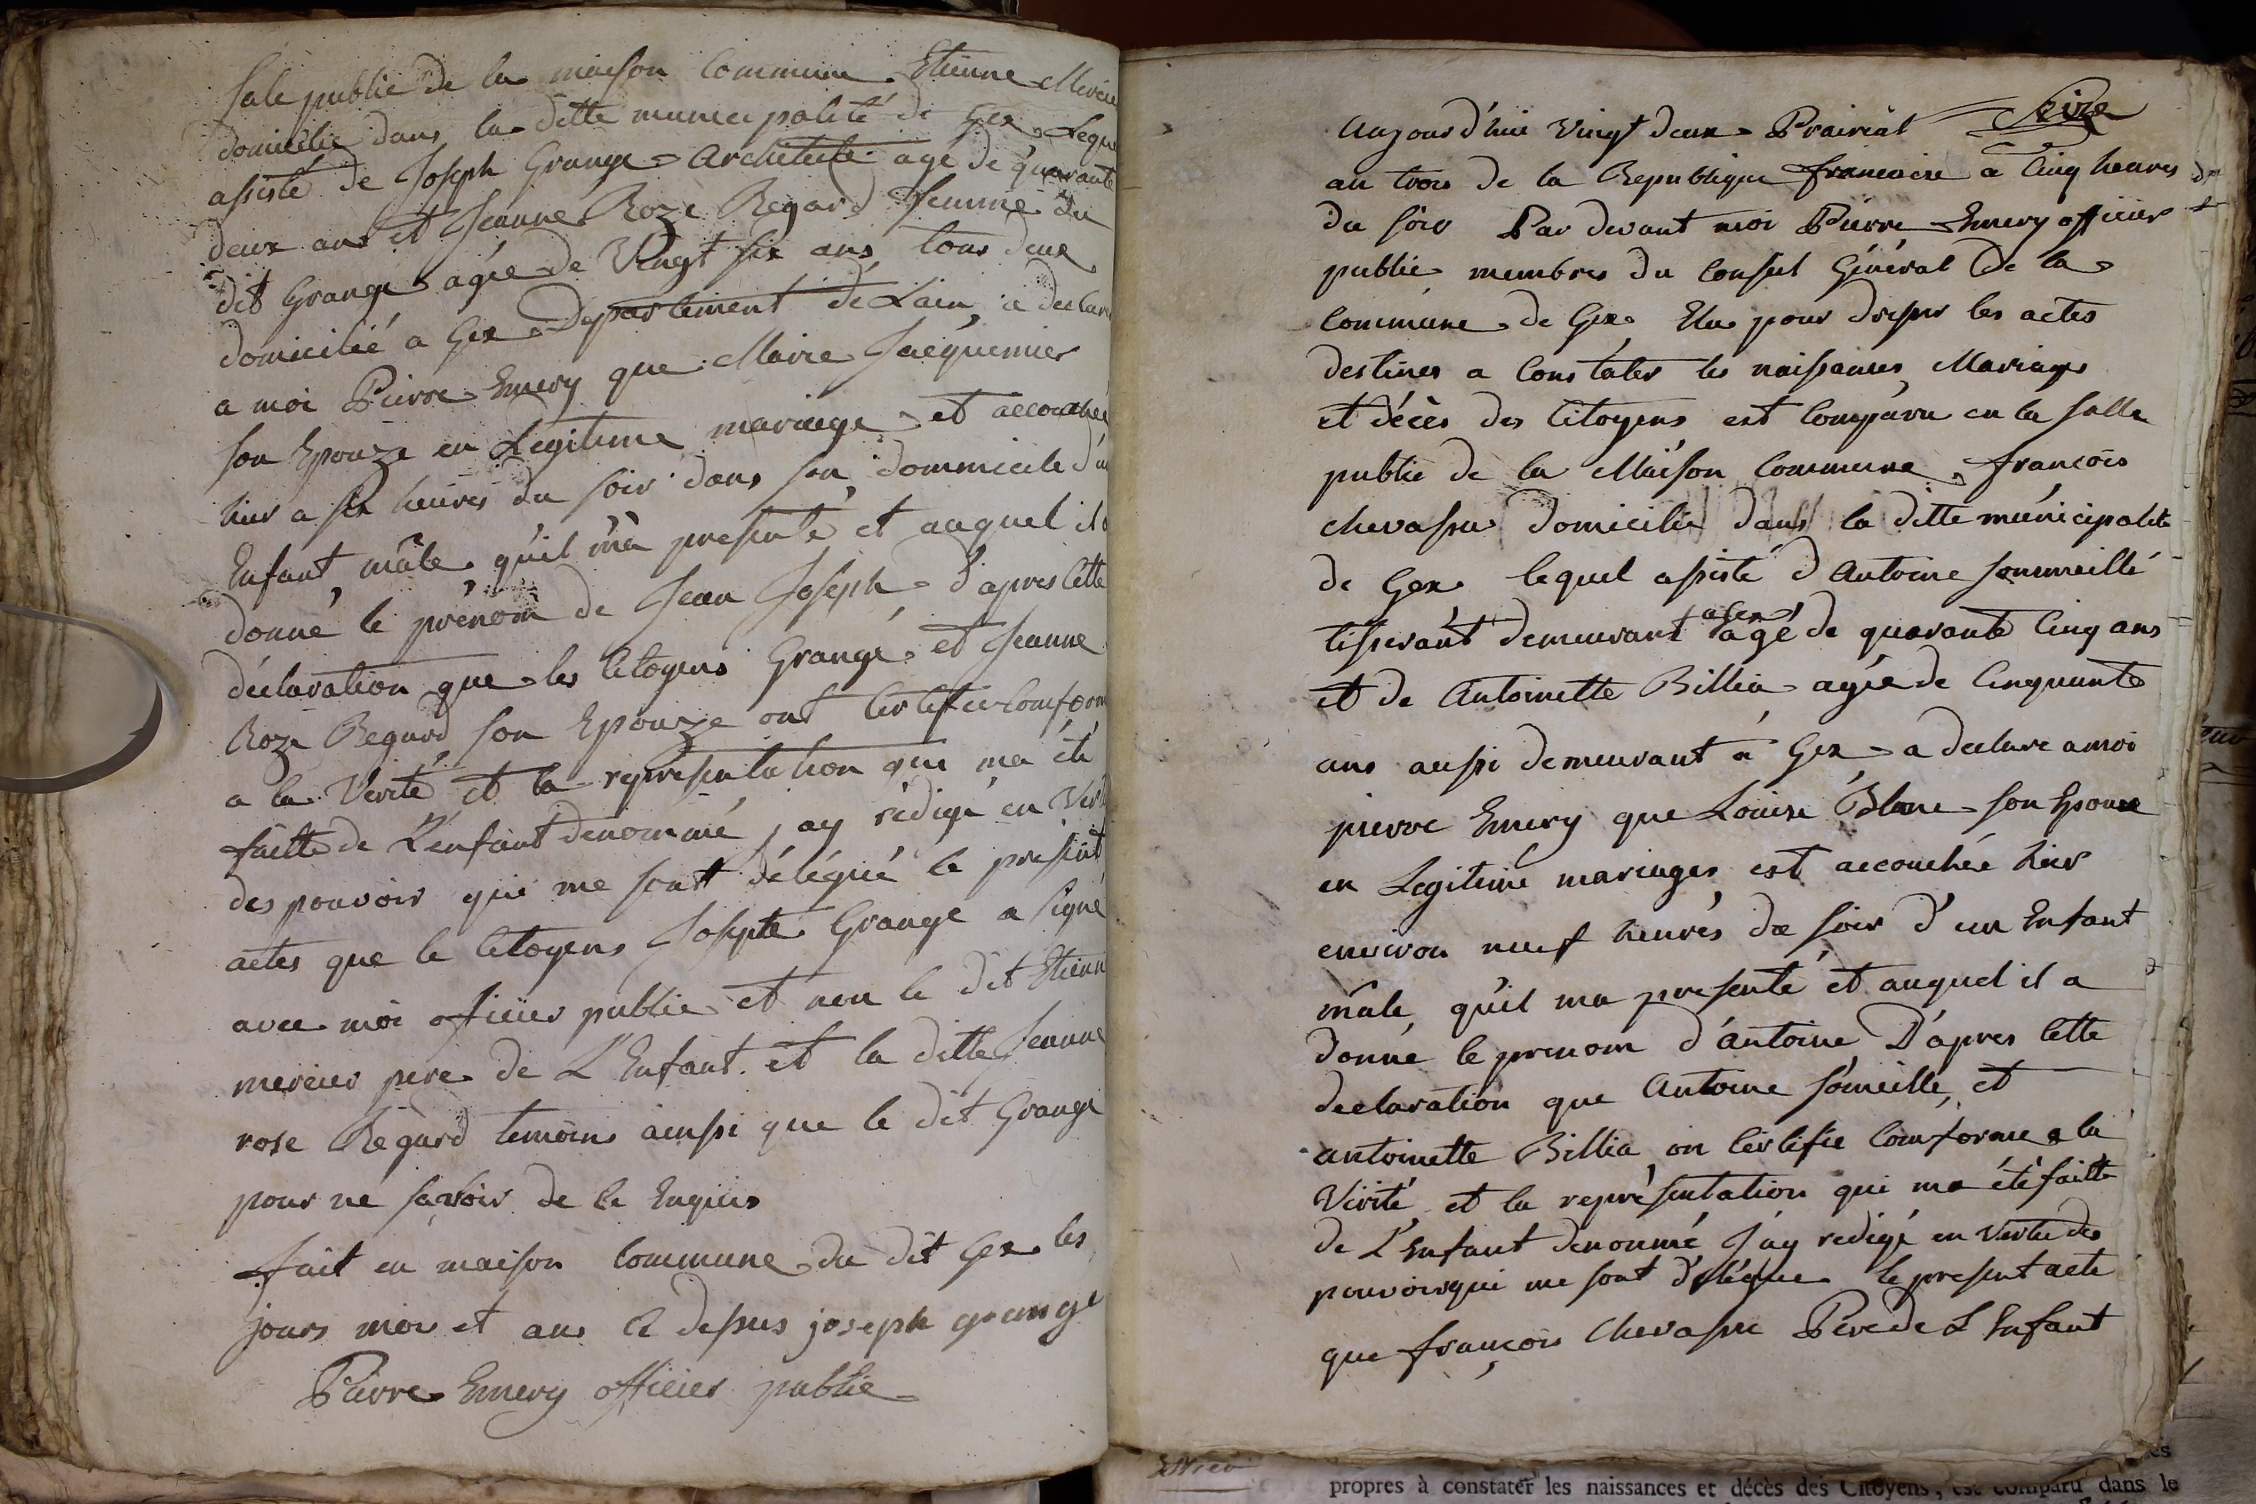 Sale publie de la maison Commune Etienne Mercie
domicilie dans la ditte municipalité de Gex Lequ
asisté de Joseph Grange Architecte agé de quarante
deux ans et Jeanne Roze Regard femme du
dit Grange agée de Vingt six ans, tous deux
domicilié a Gex Departement de Lain, a declaré
a moi Pierre Emery que Marie Jacquemier
son Epouze en Legitime mariage et accouchée
hier a six heures du soir dans son dommicile d'u
Enfant mâle qu'il m'à presenté et auquel il a
donné le prénom de Jean Joseph d'apres Cette
déclaration que les Citoyens Grange et Jeanne
Roze Regard son Epouze ont Certifie Comform
a la Verité et la représentation qui ma été
faitte de L'enfant denommé j'ay rédigé en Vertu
des pouvoir qui me sont délégué le présent
actes que le Citoyens Josepte Grange a signé
avec moi officier publie et non le dit Etienne
mercier pere de L'Enfant et la ditte Jeanne
rose Régard temoins ainssi que le dit Grange
pour ne savoir de ce Enquis
fait en maison Commune du dit Gex les
jours moi et ans Ci dessus joseph grange
Pierre Emery officier publie
Aujourd'hui Vingt deux Prairial
an trois de la Republique francaise a Cinq heures
du soir Par devant moi Pierre Emery officier
publie membres du Conseil Général de la
Commune de Gex Elu pour dresser les actes
destines a Constater les naissances, Mariage
et décès des Citoyens est Comparu en la salle
publie de la Maison Commune, francois
chevassu domicilie dans la ditte municipalite
de Gex lequel asisté d Antoine Sommeillé
tisserant demeurant a Gex agé de quarante Cinq ans
et de Antoinette Billia agée de Cinquante
ans aussi demeurant a Gex a declare a moi
pierre Emery que Louise Blanc son Epouze
en Legitime mariages est accouchée hier
environ neuf heures du soir d'un Enfant
mâle qu'il ma presenté et auquel il a
donné le prenom d'antoine D'apres Cette
declaration que Antoine Someille, et
antoinette Billia on Certifie Comforme a la
Vérité et la représentation qui ma été faitte
de L'Enfant denommé J'ay redigé en Vertu des
pouvoirs qui me sont délégue le present acte
que françois Chevassu Pere de L Enfant
propres à constater les naissances et décès des Citoyens, est comparu dans le